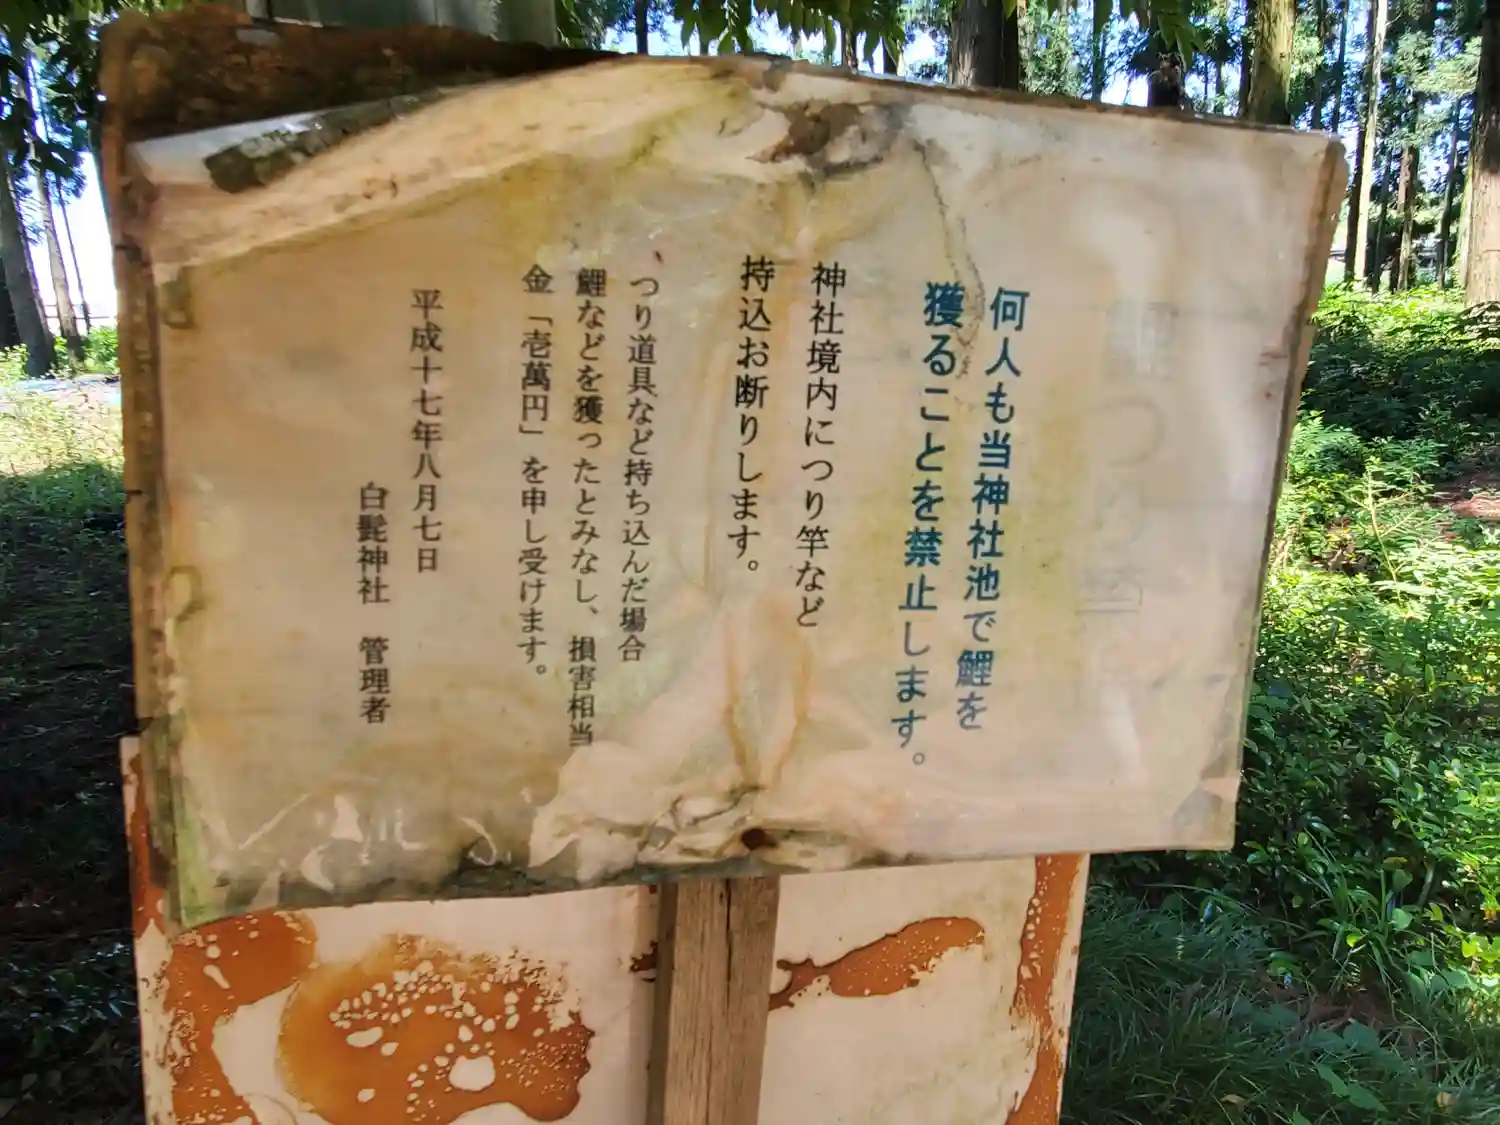 何人も当神社池で鯉を
獲ることを禁止します。
神社境内につり竿など
持込お断りします。
つり道具など持ち込んだ場合
鯉などを獲ったとみなし、損害相当
金「壱萬円」を申し受けます。
平成十七年八月七日
白髭神社　管理者